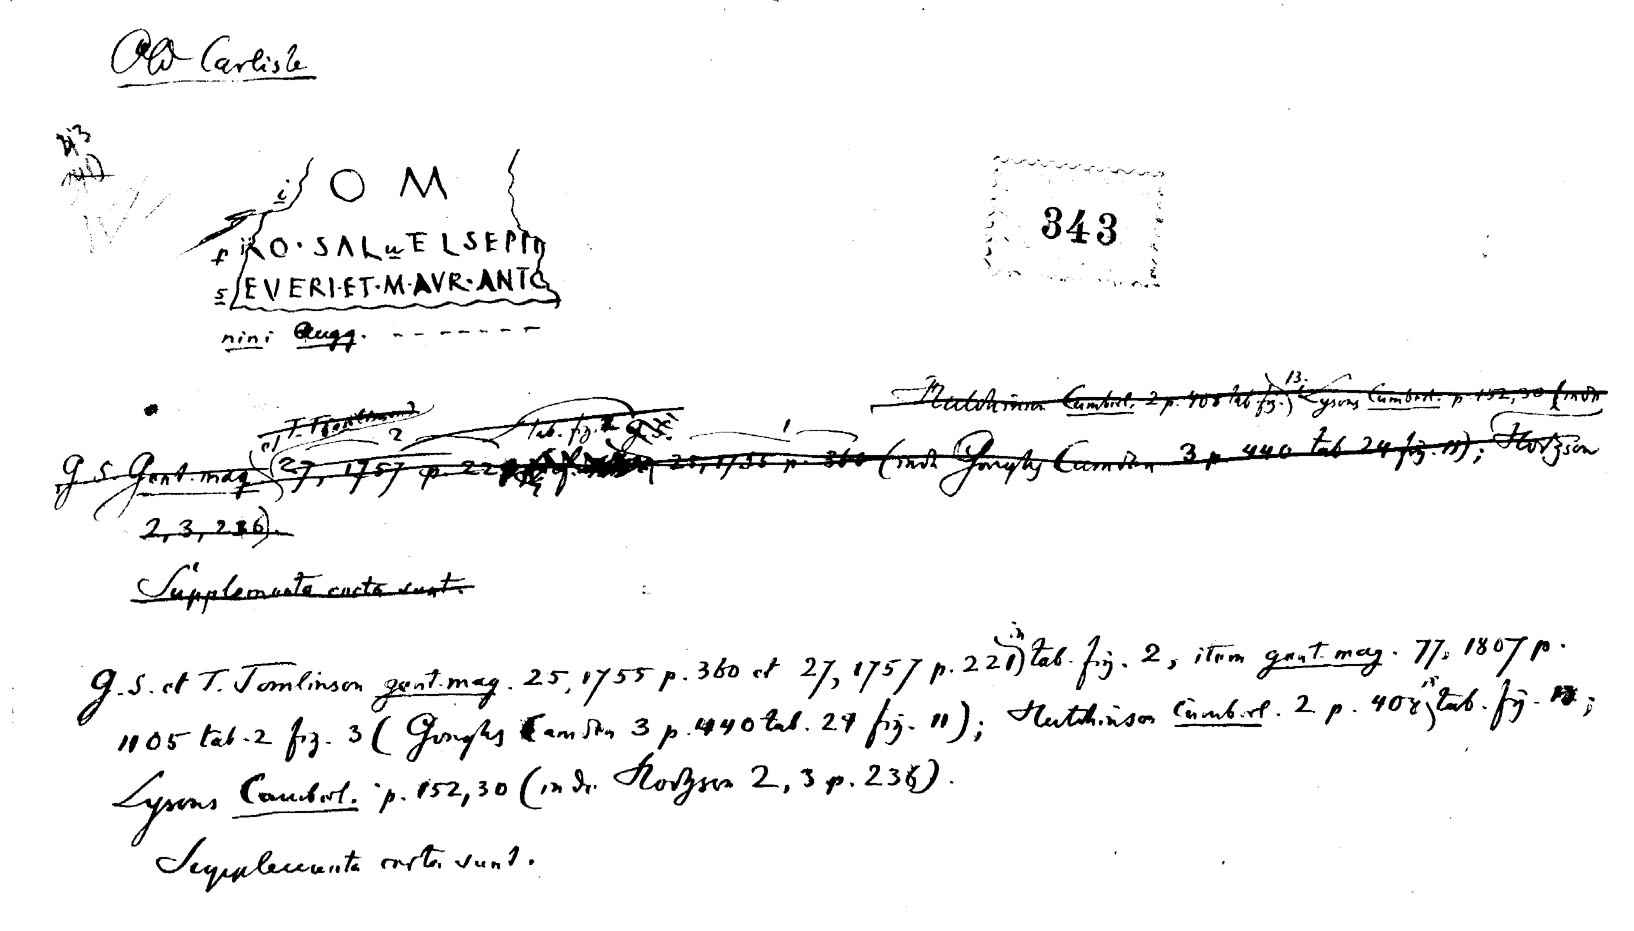 Old Carlisle
343
i O M
pRO·SALuTE L SEPTI
sEVERI·ET·M·AVR·ANTO
nini Augg. - - - - - - -
Hutchinson Cumberl. 2 p. 408 tab fig. 13. Lysons Cumberl. p. 152,30 (inde
et T. Tomlinson 2 tab. fig. 2 G. S. 1
G. S. Gent. mag 27, 1757 p. 22 25, 1755 p. 360 (inde Goughs Camden 3 p. 440 tab 24 fig. 11); Hodgson
2, 3, 236).
Supplementa certa sunt.
G. S. et T. Tomlinson gent. mag. 25, 1755 p. 360 et 27, 1757 p. 221 in tab. fig. 2, item gent. mag. 77, 1807 p.
1105 tab. 2 fig. 3 (Goughs Camden 3 p. 440 tab. 24 fig. 11); Hutchinson Cumberl. 2 p. 408 tab. fig. ;
Lysons Cumberl. p. 152,30 (inde Hodgson 2, 3 p. 236).
Supplementa certa sunt.